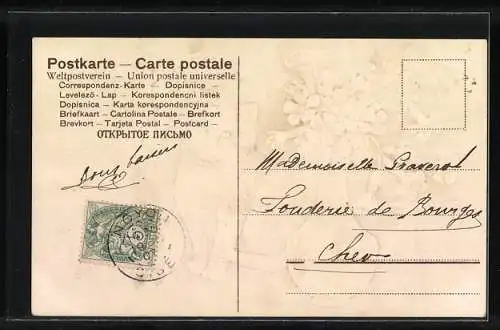 Postkarte — Carte postale
Weltpostverein — Union postale universelle
Correspondenz-Karte — Dopisnice —
Levelező-Lap — Korespondencni listek
Dopisnica — Karta korespondencyjna —
Briefkaart — Cartolina Postale — Brefkort
Brevkort — Tarjeta Postal — Postcard —
ОТКРЫТОЕ ПИСЬМО
Mademoiselle
Fonderie de Bourges
Cher
NOYON
OISE